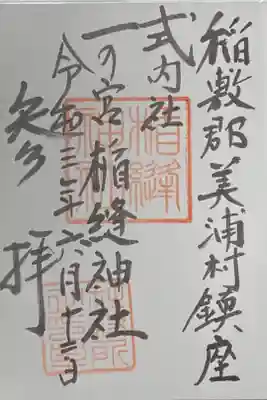 稲敷郡美浦村鎮座
式内社
一の宮楯縫神社
令和三年六月十三日
参拝
楯縫神社